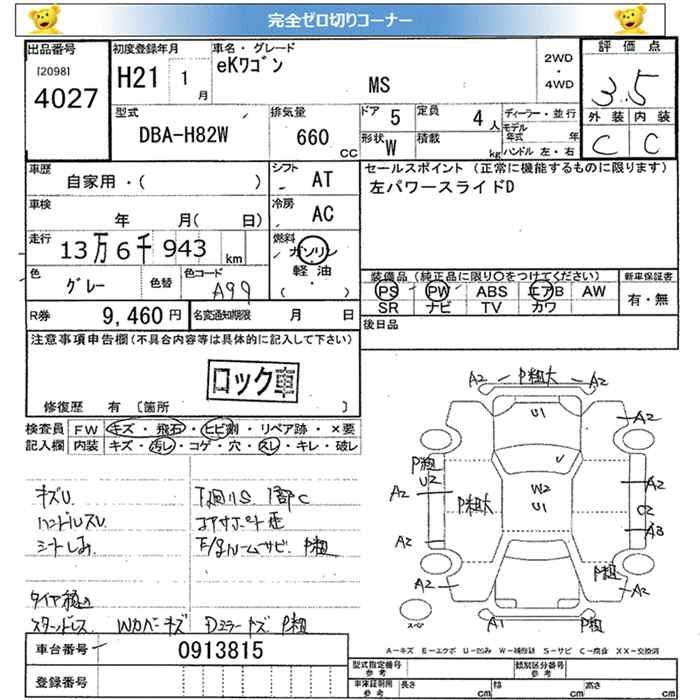 完全ゼロ切りコーナー
出品番号
[2098]
4027
初度登録年月
H21 1月
車名・グレード
eKワゴン
MS
2WD
・
4WD
評価点
3.5
外装 内装
C C
型式
DBA-H82W
排気量
660 CC
ドア 5
定員 4人
形状 W
積載 kg
ディーラー・並行
モデル年式 年
ハンドル 左・右
車歴
自家用・( )
シフト AT
セールスポイント (正常に機能するものに限ります)
左パワースライドD
車検
年 月( 日)
冷房 AC
走行
13万6千943 km
燃料
ガソリン
軽油
( )
色
グレー
色替
色コード
A99
装備品 (純正品に限り〇をつけてください)
PS PW ABS エアB AW
SR ナビ TV カワ
新車保証書
有・無
R券 9,460円
名変通知期限 月 日
後日品
注意事項申告欄(不具合内容等は具体的に記入して下さい)
ロック車
修復歴 有 [箇所 ]
検査員記入欄
FW キズ・飛石・ヒビ割・リペア跡・×要
内装 キズ・汚レ・コゲ・穴・スレ・キレ・破レ
キズU
ハンドルスレ
シートしみ
下廻りS 1部C
コアサポート歪
F/gルームサビ P粗
スタッドレス Wカバーキズ Dミラーキズ P粗
A2 P粗大 A2
U1
A2
P粗
U2
A2
P粗大
W2
U1
A2
C2
A3
A2
A2
P粗
A2
スペア
A1
P粗
A-キズ E-エクボ U-凹み W-補修跡 S-サビ C-腐食 XX-交換済
車台番号 0913815
登録番号
型式指定番号 参考
類別区分番号 参考
車体証明用 参考
長さ cm
幅 cm
高さ cm